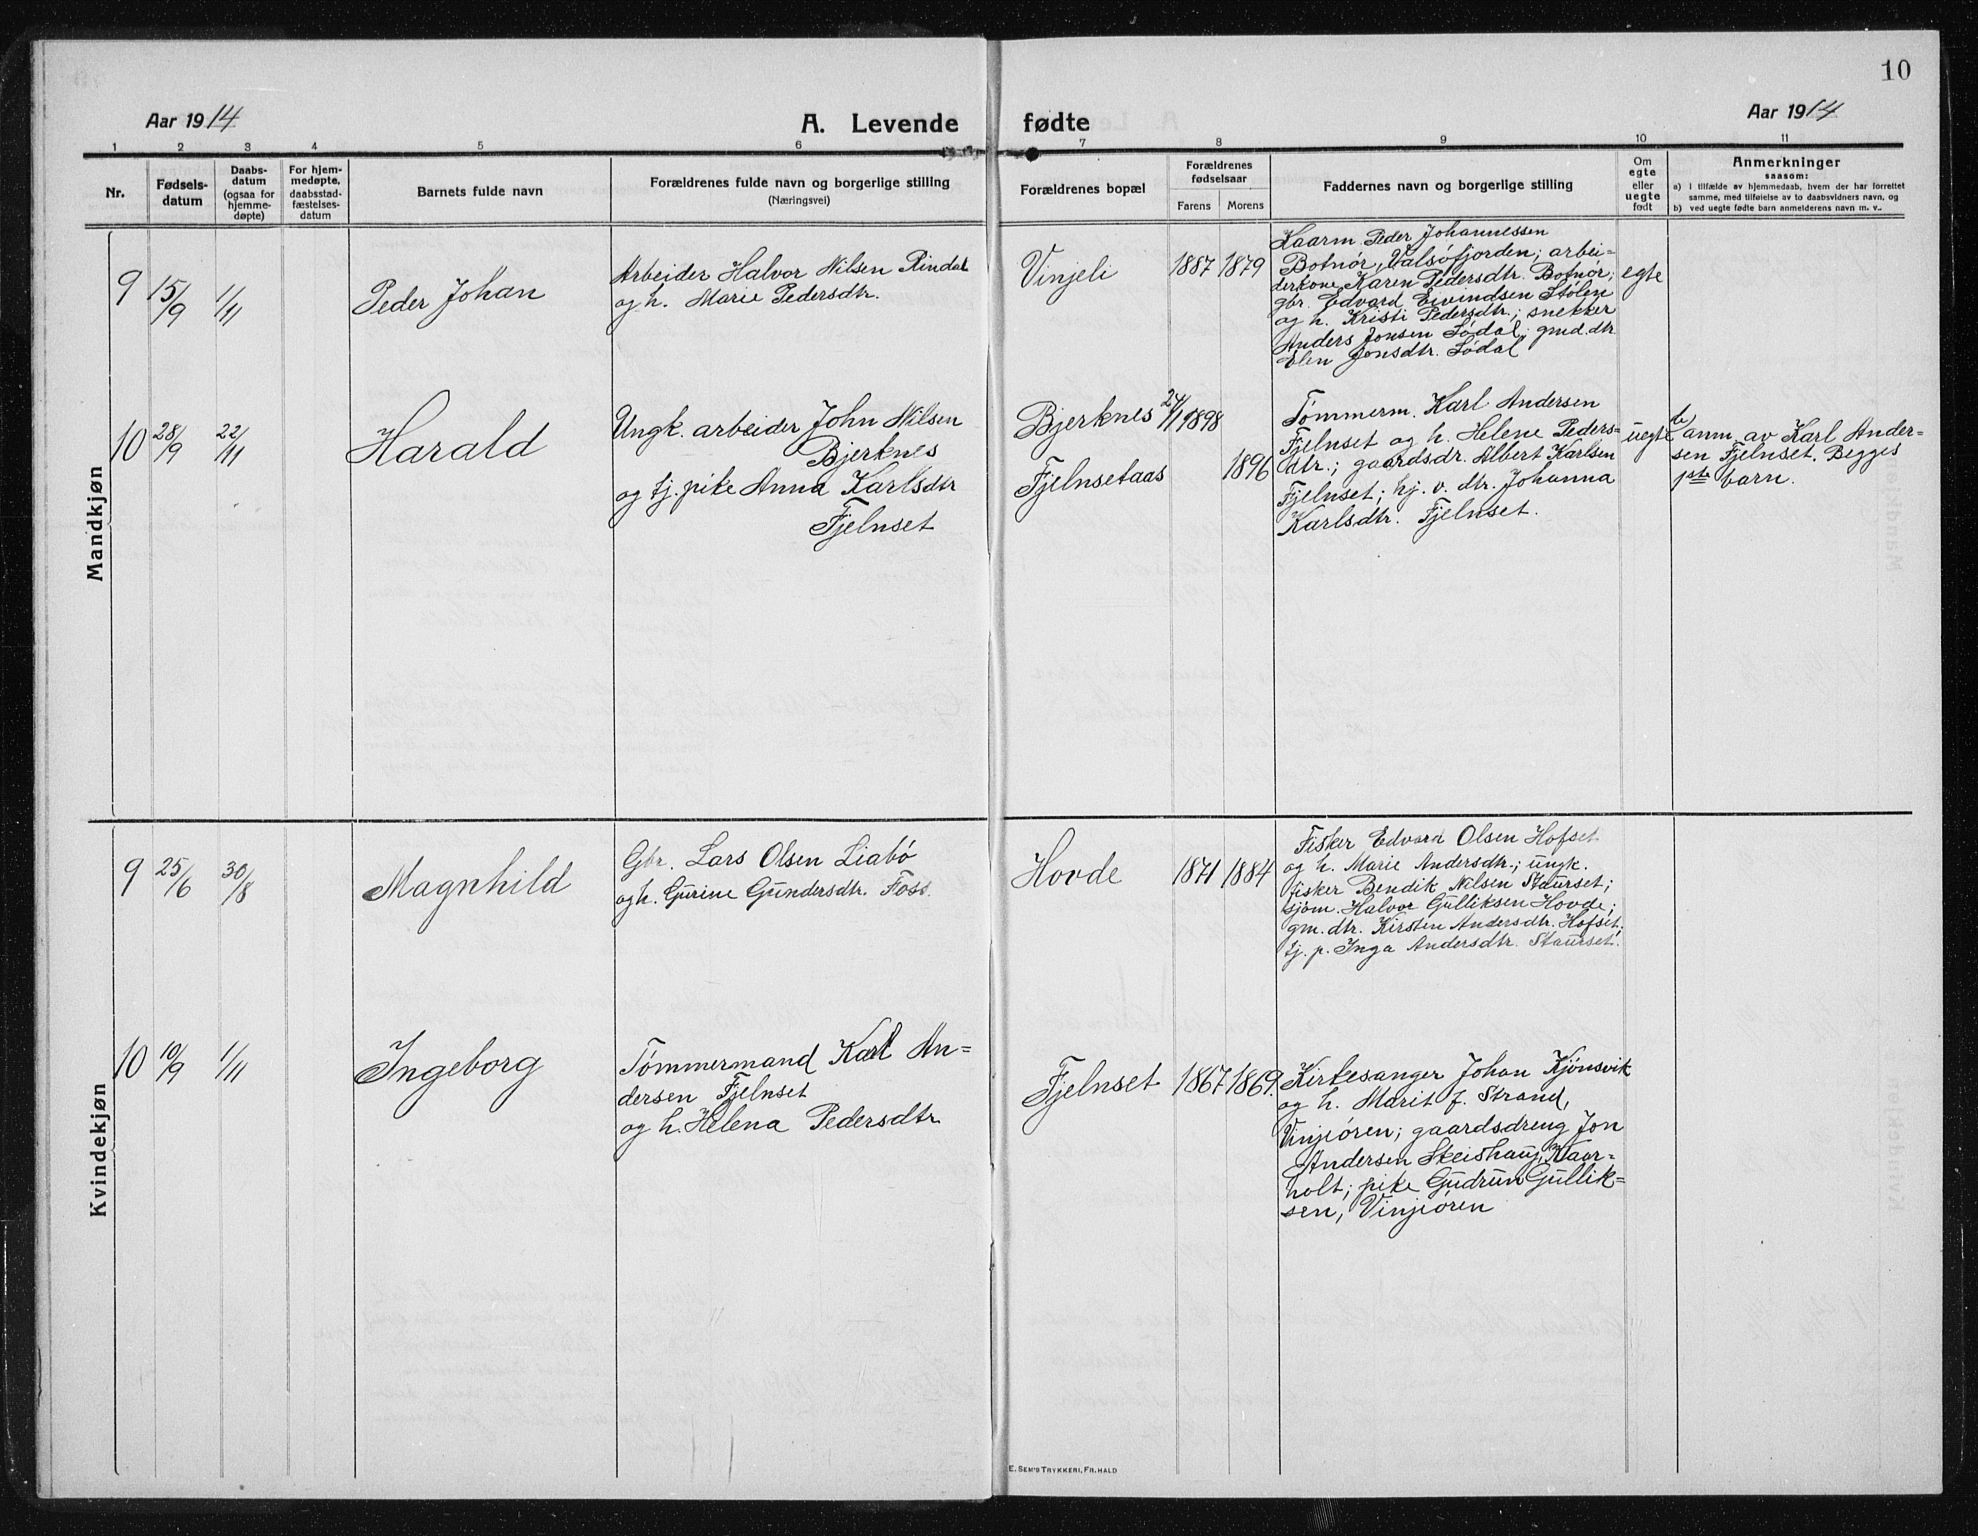 10
Aar 1914
A. Levende
fødte
Aar 1914
1 2 3 4 5 6 7 8 9 10 11
Nr.
Fødsels-
datum
Daabs-
datum
(ogsaa for
hjemme-
døpte)
For hjem-
medøpte,
daabsstad-
fæstelses-
datum
Barnets fulde navn
Forældrenes fulde navn og borgerlige stilling
(Næringsvei)
Forældrenes bopæl
Forældrenes
fødselsaar
Farens Morens
Faddernes navn og borgerlige stilling
Om
egte
eller
uegte
født
Anmerkninger
saasom:
a) i tilfælde av hjemmedaab, hvem der har forrettet
samme, med tilføielse av to daabsvidners navn, og
b) ved uegte fødte barn anmelderens navn m. v..
Mandkjøn
9 15/9 1/11
Peder Johan
Arbeider Halvor Nilsen Rindal
og h. Marie Pedersdtr.
Vinjeli
1887 1879
Kaarm. Peder Johannessen
Botnør, Valsøfjorden; arbei-
derkone Karen Pedersdtr. Botnør;
gbr. Edvard Eivindsen Stølen
og h. Kristi Pedersdtr.; snekker
Anders Jonsen Sødal; gmd. dtr.
Elen Jonsdtr. Sødal
egte
10 28/9 22/11
Harald
Ungk. arbeider John Nilsen
Bjerknes
og tj. pike Anna Karlsdtr
Fjelnset
Bjerknes 24/11 1898
Fjelnsetaas 1896
Tømmerm. Karl Andersen
Fjelnset og h. Helene Peders-
dtr.; gaardsdr. Albert Karlsen
Fjelnset; hj. v. dtr. Johanna
Karlsdtr. Fjelnset.
uegte
b
anm. av Karl Ander-
sen Fjelnset. Begges
1ste barn.
Kvindekjøn
9 25/6 30/8
Magnhild
Gbr. Lars Olsen Liabø
og h. Gurine Gundersdtr. Foss.
Hovde
1871 1884
Fisker Edvard Olsen Hofset
og h. Marie Andersdtr.; ungk.
fisker Bendik Nilsen Staurset;
sjøm. Halvor Gulliksen Hovde;
gm. dtr. Kirsten Andersdtr. Hofset;
tj. p. Inga Andersdtr. Staurset.
10 10/9 1/11
Ingeborg
Tømmermand Karl An-
dersen Fjelnset
og h. Helena Pedersdtr
Fjelnset
1867 1869.
Kirkesanger Johan Kjønsvik
og h. Marit f. Strand,
Vinjeøren; gaardsdreng Jon
Andersen Skeishaug, Kaar-
holt; pike Gudrun Gullik-
sen, Vinjeøren
E. Sem's Trykkeri, Fr.hald